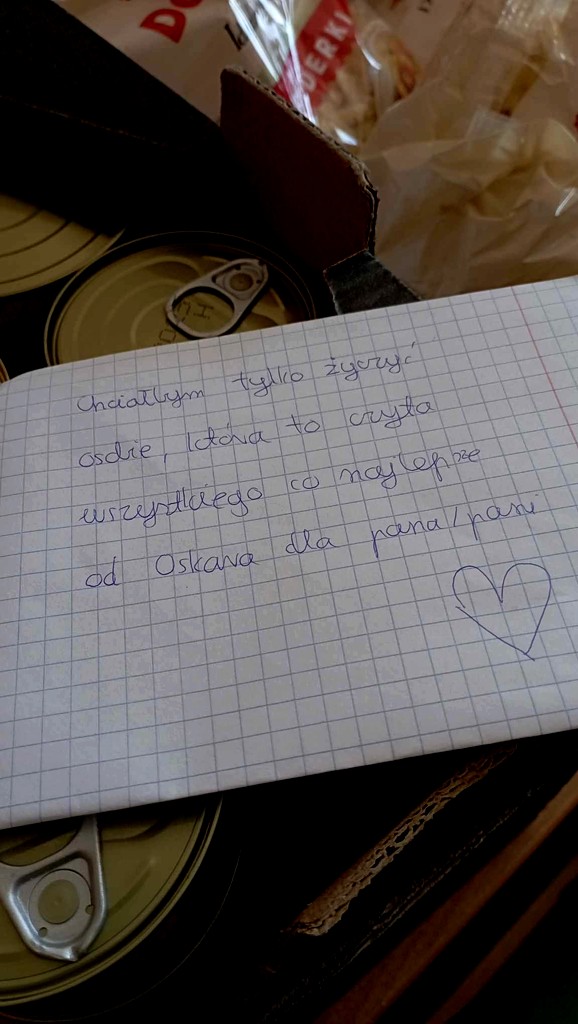 DO
DERKI
Chciałbym tylko życzyć
osobie, która to czyta
wszystkiego co najlepsze
od Oskara dla pana/pani